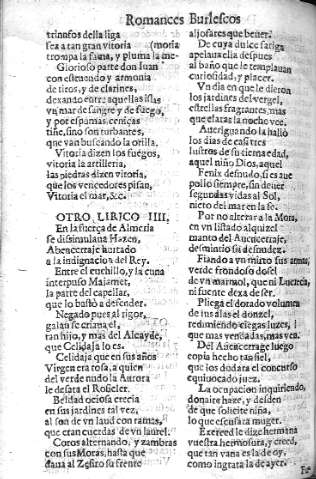 Romances Burlescos
trinufos della liga
sea a tan gran vitoria (moria
trompa la fama, y pluma la me-
Glorioso parte don Iuan
con estruendo y armonia
de tiros, y de clarines,
dexando entre aquellas islas
vn mar de sangre y de fuego,
y por espumas, cenizas
tiñe, sino son turbantes,
que van buscando la orilla.
Vitoria dizen los fuegos,
vitoria la artilleria,
las piedras dizen vitoria,
que los vencedores pisan,
Vitoria el mar, &c.
OTRO LIRICO IIII.
En la fuerça de Almeria
se dissimulaua Hazen,
Abencerraje hurtado
a la indignacion del Rey.
Entre el cuchillo, y la cuna
interpuso Majamet,
la parte del capellar,
que lo bastò a defender.
Negado pues al rigor,
galan se cria en el,
tan hijo, y mas del Alcayde,
que Celidaja lo es.
Celidaja que en sus años
Virgen era rosa, a quien
del verde nudo la Aurora
le desata el Rosicler.
Beldad ociosa crecia
en sus jardines tal vez,
al son de vn laud con ramas,
que eran cuerdas de vn laurel.
Coros alternando, y zambras
con sus Moras, hasta que
daua al Zefiro su frente
aljofares que beuer.
De cuya dulce fatiga
apelaua ella despues
al baño que le templauan
curiosidad, y placer.
Vn dia en que le dieron
los jardines del vergel,
estrellas fragrantes, mas
que claras la noche vee.
Aueriguando la hallò
los dias de casi tres
lustros de su tierna edad,
aquel niño Dios, aquel
Fenix desnudo, si es aue
pollo siempre, sin deuer
segundas vidas al Sol,
nieto del mar en la fe.
Por no alterar a la Mora,
en vn listado alquizel
manto del Auencerraje,
desmintio su desnudez.
Fiando a vn mirto sus armas,
verde frondoso dosel
de vn marmol, que ni Lucrecia,
ni fuente dexa de ser.
Pliega el dorado volumen
de sus alas el donzel,
redimiendo ciegas luzes,
que mas vendadas, mas ven.
Del Auencerrage luego
copia hecho tan fiel,
que los dudara el concurso
equiuocado juez.
La ocupacion inquiriendo,
donaire haze, y desden
de que solicite niña,
lo que escusara muger.
Exerced le dize hermana
vuestra hermosura, y creed,
que tan vana es la de oy,
como ingrata la de ayer.